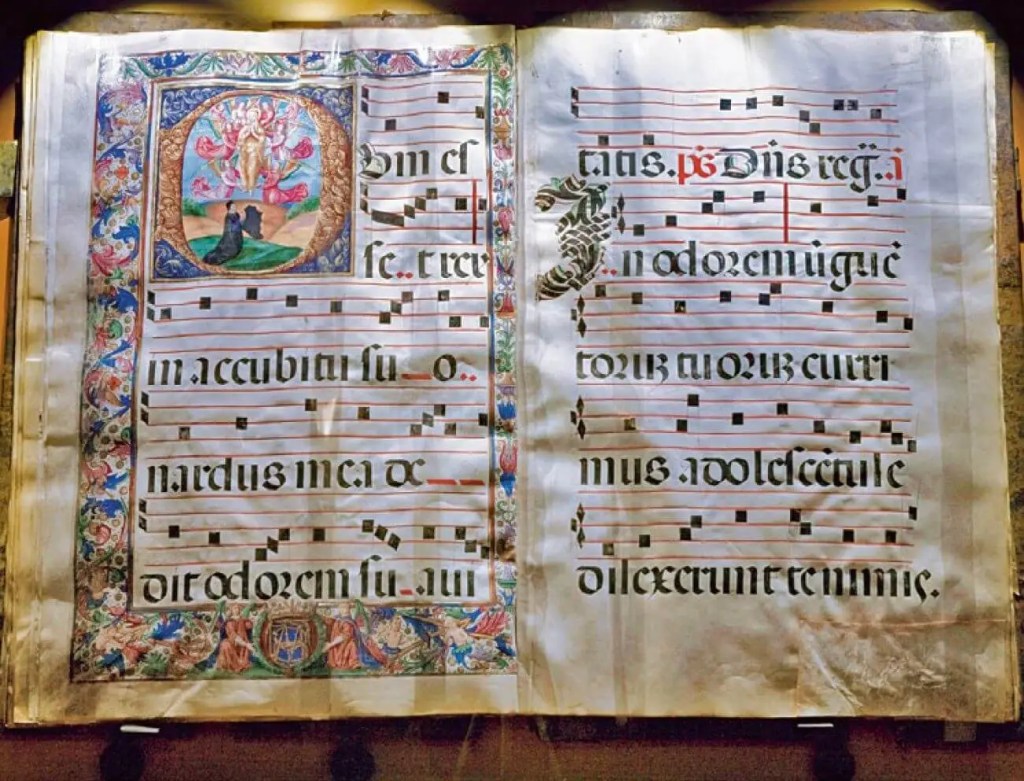 Dum es
se..t rex
in accubitu su_o..
nardus mea de__
dit odorem su_aui
tatis. ps Dñs reg̃. a
In odorem ũguẽ
toruʒ tuoruʒ curri
mus adolescẽtule
dilexerunt te nimis.